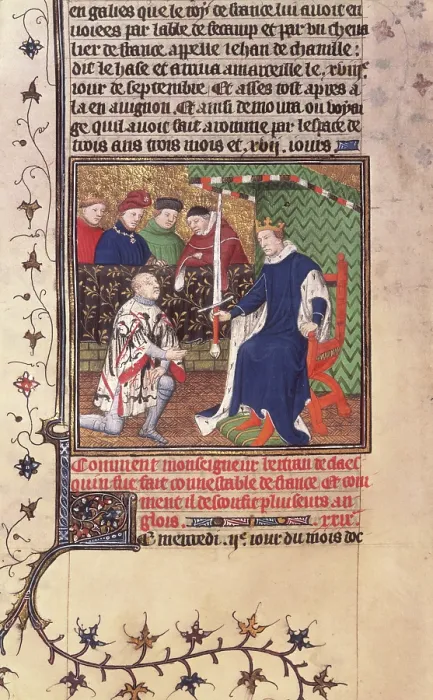 en galies que le roy de france lui auoit en
uoiees par labbe de fecamp et par vn cheua
lier de france appelle iehan de chanille :
dit le hase et arriua a marceille le xviij.e
iour de septembre Et asses tost apres a
la en auignon. Et ainsi demoura ou voya
ge quil auoit fait a romme par lespace de
trois ans trois mois et xvij. iours
Comment monseigneur bertran de claec
quin fut fait connestable de france et com
ment il desconfit pluseurs an
glois. xxix.e
Le mercredi .ij.e iour du mois doc